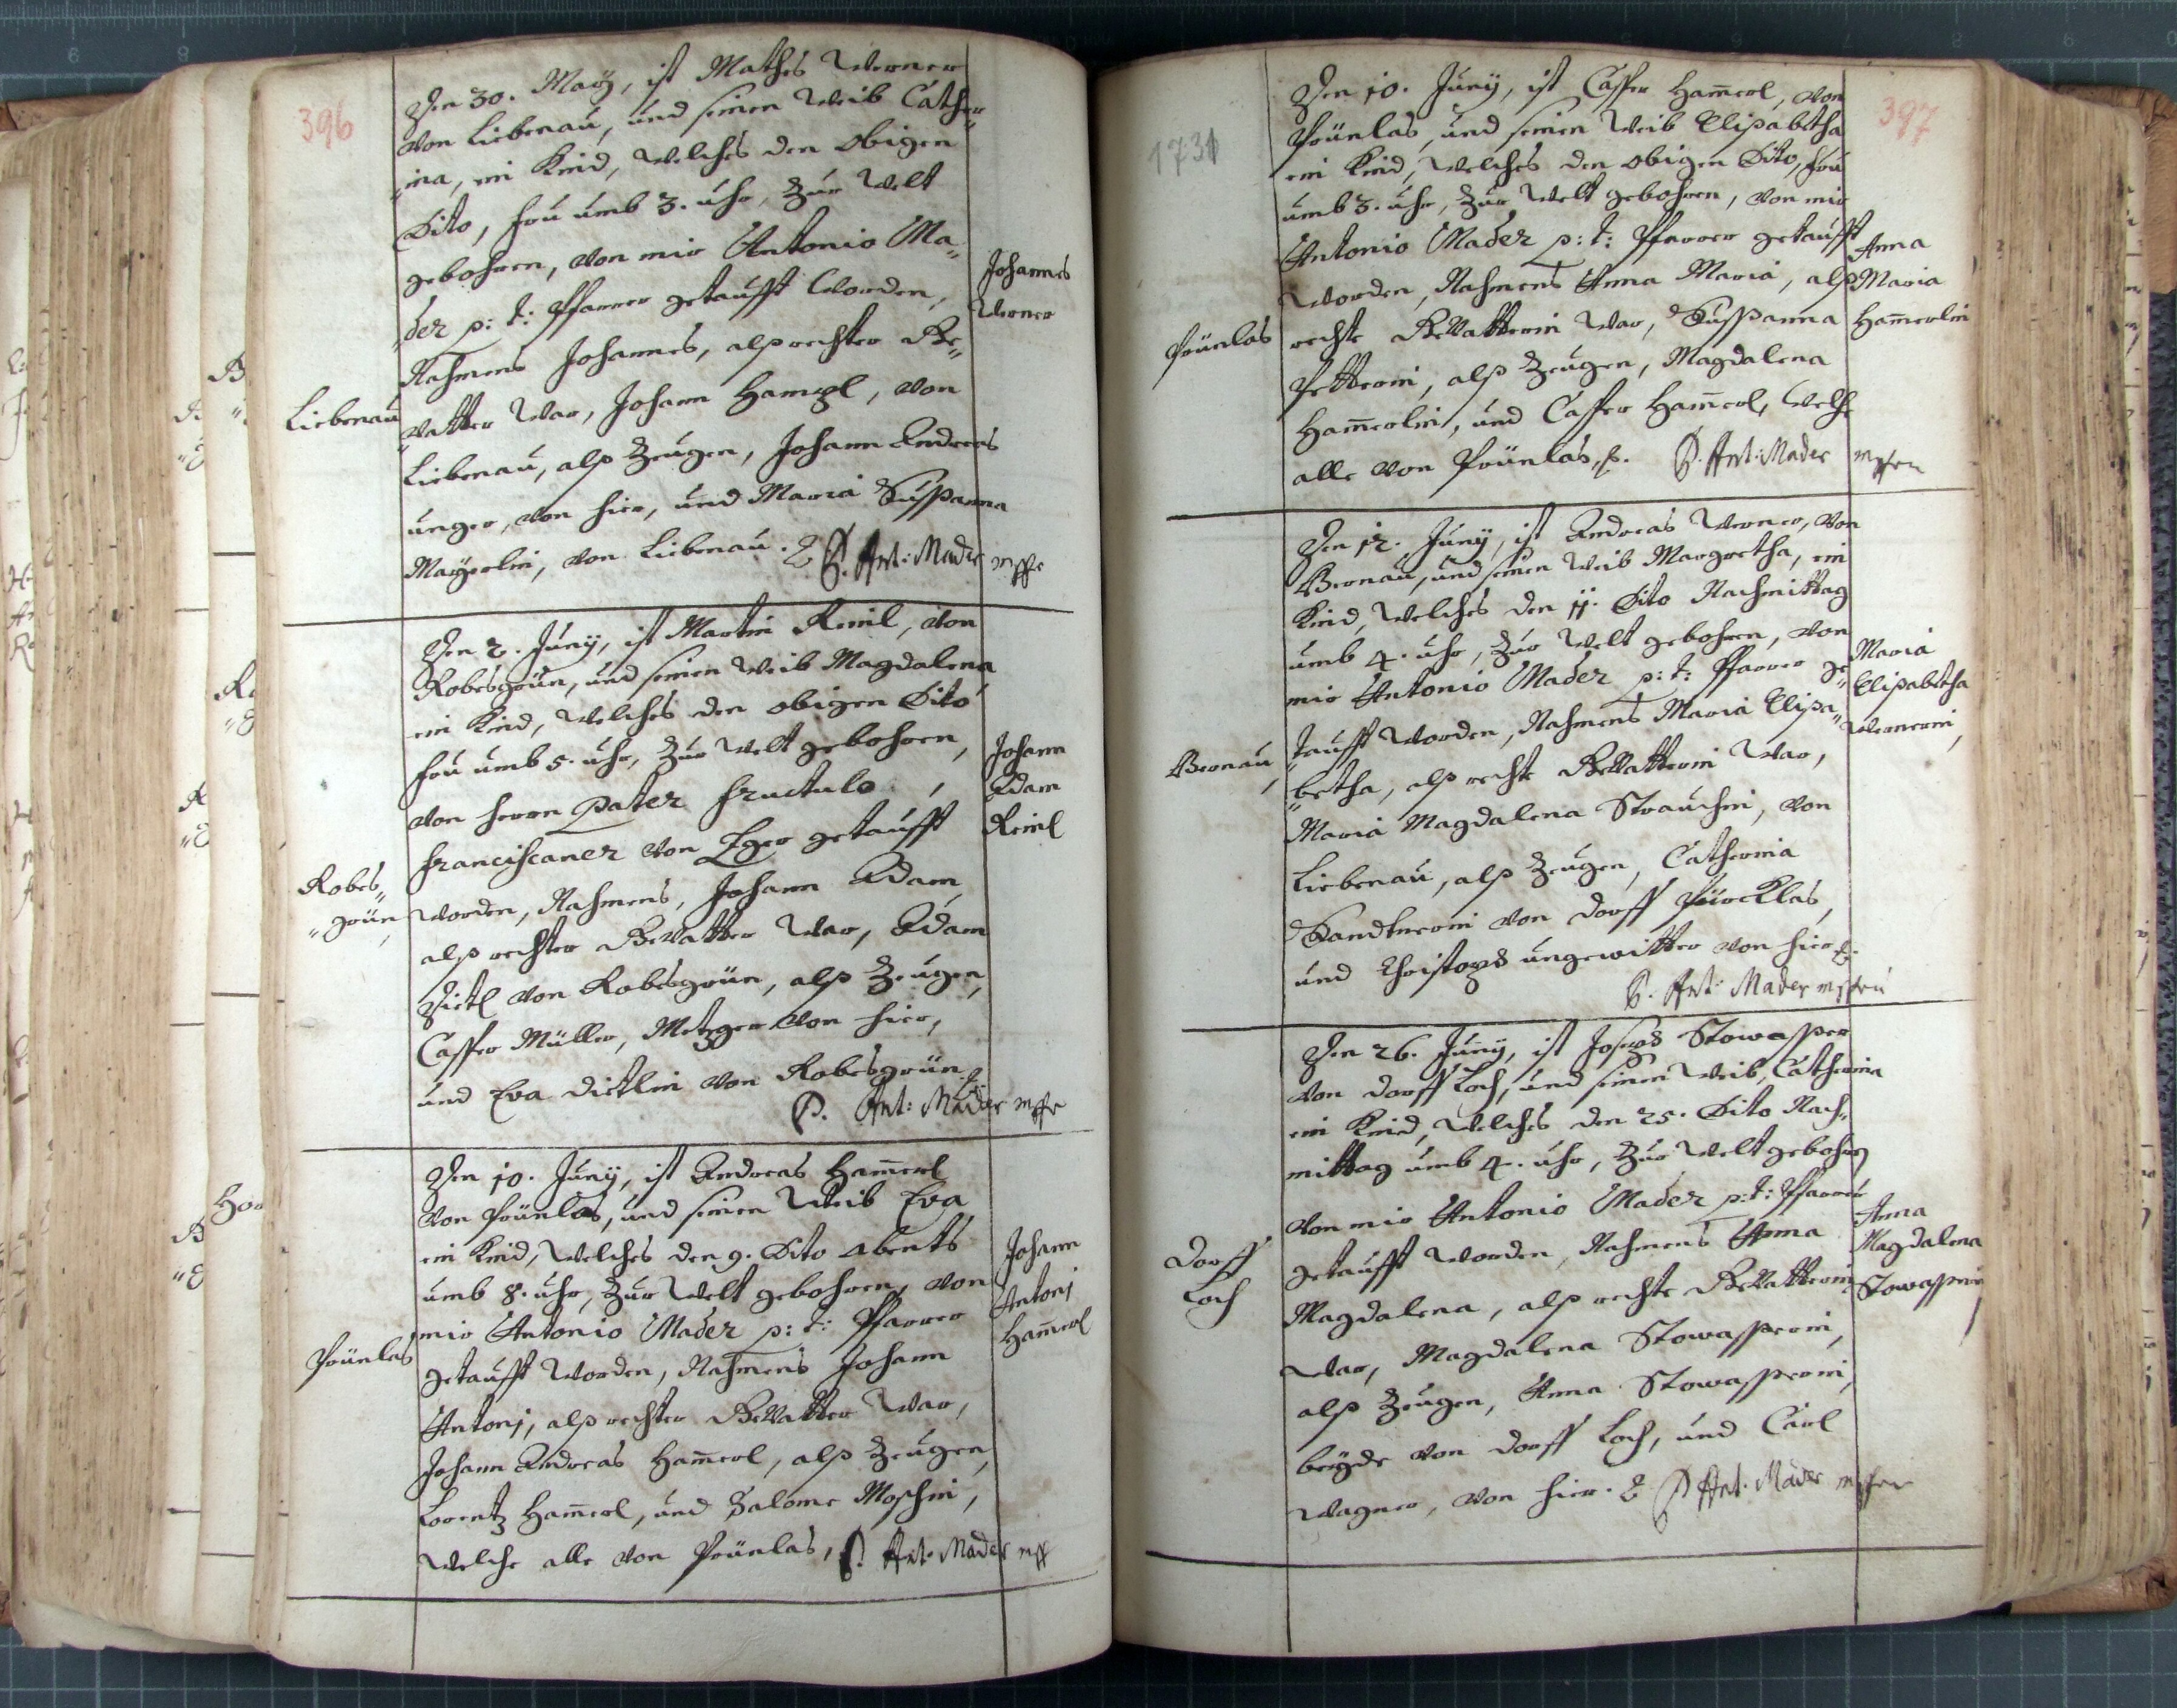 396
Den 30. Maÿ, ist Mathes Werner
von Liebenau, und seinen Weib Cather„
„ina, ein Kind, welches den obigen
Dito, fru umb 3. uhr, zur Welt
gebohren, von mir Antonio Ma„
„der p: t: Pfarrer getaufft worden,
Nahmens Johannes, alß rechter Ge„
„vatter war, Johann Hampl, von
Liebenau, alß Zeugen, Johann Andreas
unger, von hier, und Maria Sußanna
Maÿerlin, von Liebenau. P. Ant: Mader mppr
Liebenau
Johannes
Werner
Den 2. Junÿ, ist Martin Reinl, von
Robesgrün, und seinen Weib Magdalena
ein Kind, welches den obigen Dito
fru umb 5. uhr, zur Welt gebohren,
von Herrn Pater Fructulo,
Franciscaner von Eger getaufft
worden, Nahmens, Johann Adam,
alß rechter Gevatter war, Adam
Dietl von Robesgrün, alß Zeugen,
Casper Müller, Metzger von hier,
und Eva Dietlin von Robesgrün
P. Ant: Mader mppr
Robes„
„grün,
Johann
Adam
Reinl
Den 10. Junÿ, ist Andreas Ham̄erl
von Prünlas, und seinen Weib Eva
ein Kind, welches den 9. Dito abents
umb 8. uhr, zur Welt gebohren, von
mir Antonio Mader p: t: Pfarrer
getaufft worden, Nahmens Johann
Antonj, alß rechter Gevatter war,
Johann Andreas Ham̄erl, alß Zeugen,
Lorentz Ham̄erl, und Salome Moschin,
welche alle von Prünlas, P. Ant: Mader mpp
Prünlas
Johann
Antonj
Ham̄erl
397
1731
Den 10. Junÿ, ist Casper Ham̄erl, von
Prünlas, und seinen Weib Elisabetha
ein Kind, welches den obigen Dito, fru
umb 3. uhr, zur Welt gebohren, von mir
Antonio Mader p: t: Pfarrer getaufft
worden, Nahmens Anna Maria, alß
rechte Gevatterin war, Sußanna
Petterin, alß Zeugen, Magdalena
Ham̄erlin, und Casper Ham̄erl, welche
alle von Prünlas, P. Ant: Mader
Prünlas
Anna
Maria
Ham̄erlin
Den 12. Junÿ, ist Andreas Werner, von
Bernau, und seinen Weib Margretha, ein
Kind, welches den 11. Dito Nachmittag
umb 4. uhr, zur Welt gebohren, von
mir Antonio Mader p: t: Pfarrer ge„
„taufft worden, Nahmens Maria Elisa„
„betha, alß rechte Gevatterin war,
Maria Magdalena Strauchin, von
Liebenau, alß Zeugen, Catherina
Sandtnerin von Dorff Pürcklas,
und Christoph ungewitter von hier
P. Ant: Mader
Bernau,
Maria
Elisabetha
Wernerin,
Den 26. Junÿ, ist Joseph Stowasser
von Dorff Loch, und seinen Weib, Catherina
ein Kind, welches den 25. Dito Nach„
mittag umb 4. uhr, zur Welt gebohren
von mir Antonio Mader p: t: Pfarrer
getaufft worden, Nahmens Anna
Magdalena, alß rechte Gevatterin
war, Magdalena Stowasserin,
alß Zeugen, Anna Stowasserin,
beÿde von Dorff Loch, und Carl
Wagner, von hier. P. Ant: Mader
Dorff
Loch
Anna
Magdalena
Stowasserin